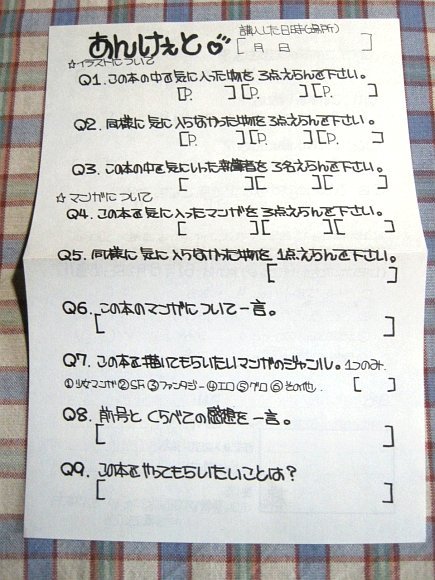 あんけぇと♡
購入した日時(場所)
[ 月 日 ]
☆イラストについて
Q1. この本の中で気に入った物を3点えらんで下さい。
[P. ][P. ][P. ]
Q2. 同様に気に入らなかった物を3点えらんで下さい。
[P. ][P. ][P. ]
Q3. この本の中で気にいった執筆者を3名えらんで下さい。
[ ][ ][ ]
☆マンガについて
Q4. この本で気に入ったマンガを3点えらんで下さい。
[ ][ ][ ]
Q5. 同様に気に入らなかった物を1点えらんで下さい。
[ ]
Q6. この本のマンガについて一言。
[ ]
Q7. この本で描いてもらいたいマンガのジャンル。1つのみ.
①少女マンガ②SF③ファンタジー④エロ⑤グロ⑥その他. [ ]
Q8. 前号とくらべての感想を一言。
[ ]
Q9. この本でやってもらいたいことは？
[ ]